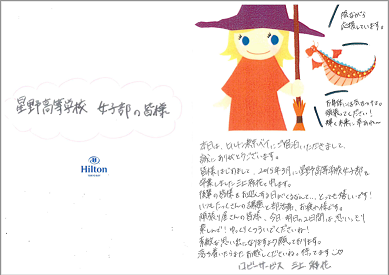 星野高等学校 女子部の皆様
Hilton
陰ながら
応援しています。
お身体にお気をつけて
頑張ってください!
本日は、ヒルトン東京ベイにご宿泊いただきまして、
誠にありがとうございます。
皆様はじめまして、2015年3月に星野高等学校女子部を
卒業しました と申します。
後輩の皆様とお会い できるなんて…とっても嬉しいです!
いつもたくさんの講習と部活動、お疲れ様です。
頑張り屋さんの皆様、今日明日の2日間は、思いっきり
楽しんで!ゆっくりくつろいでくださいね!
素敵な思い出になりますよう願っております。
またお越しくださいね。待ってます
ロビーサービス